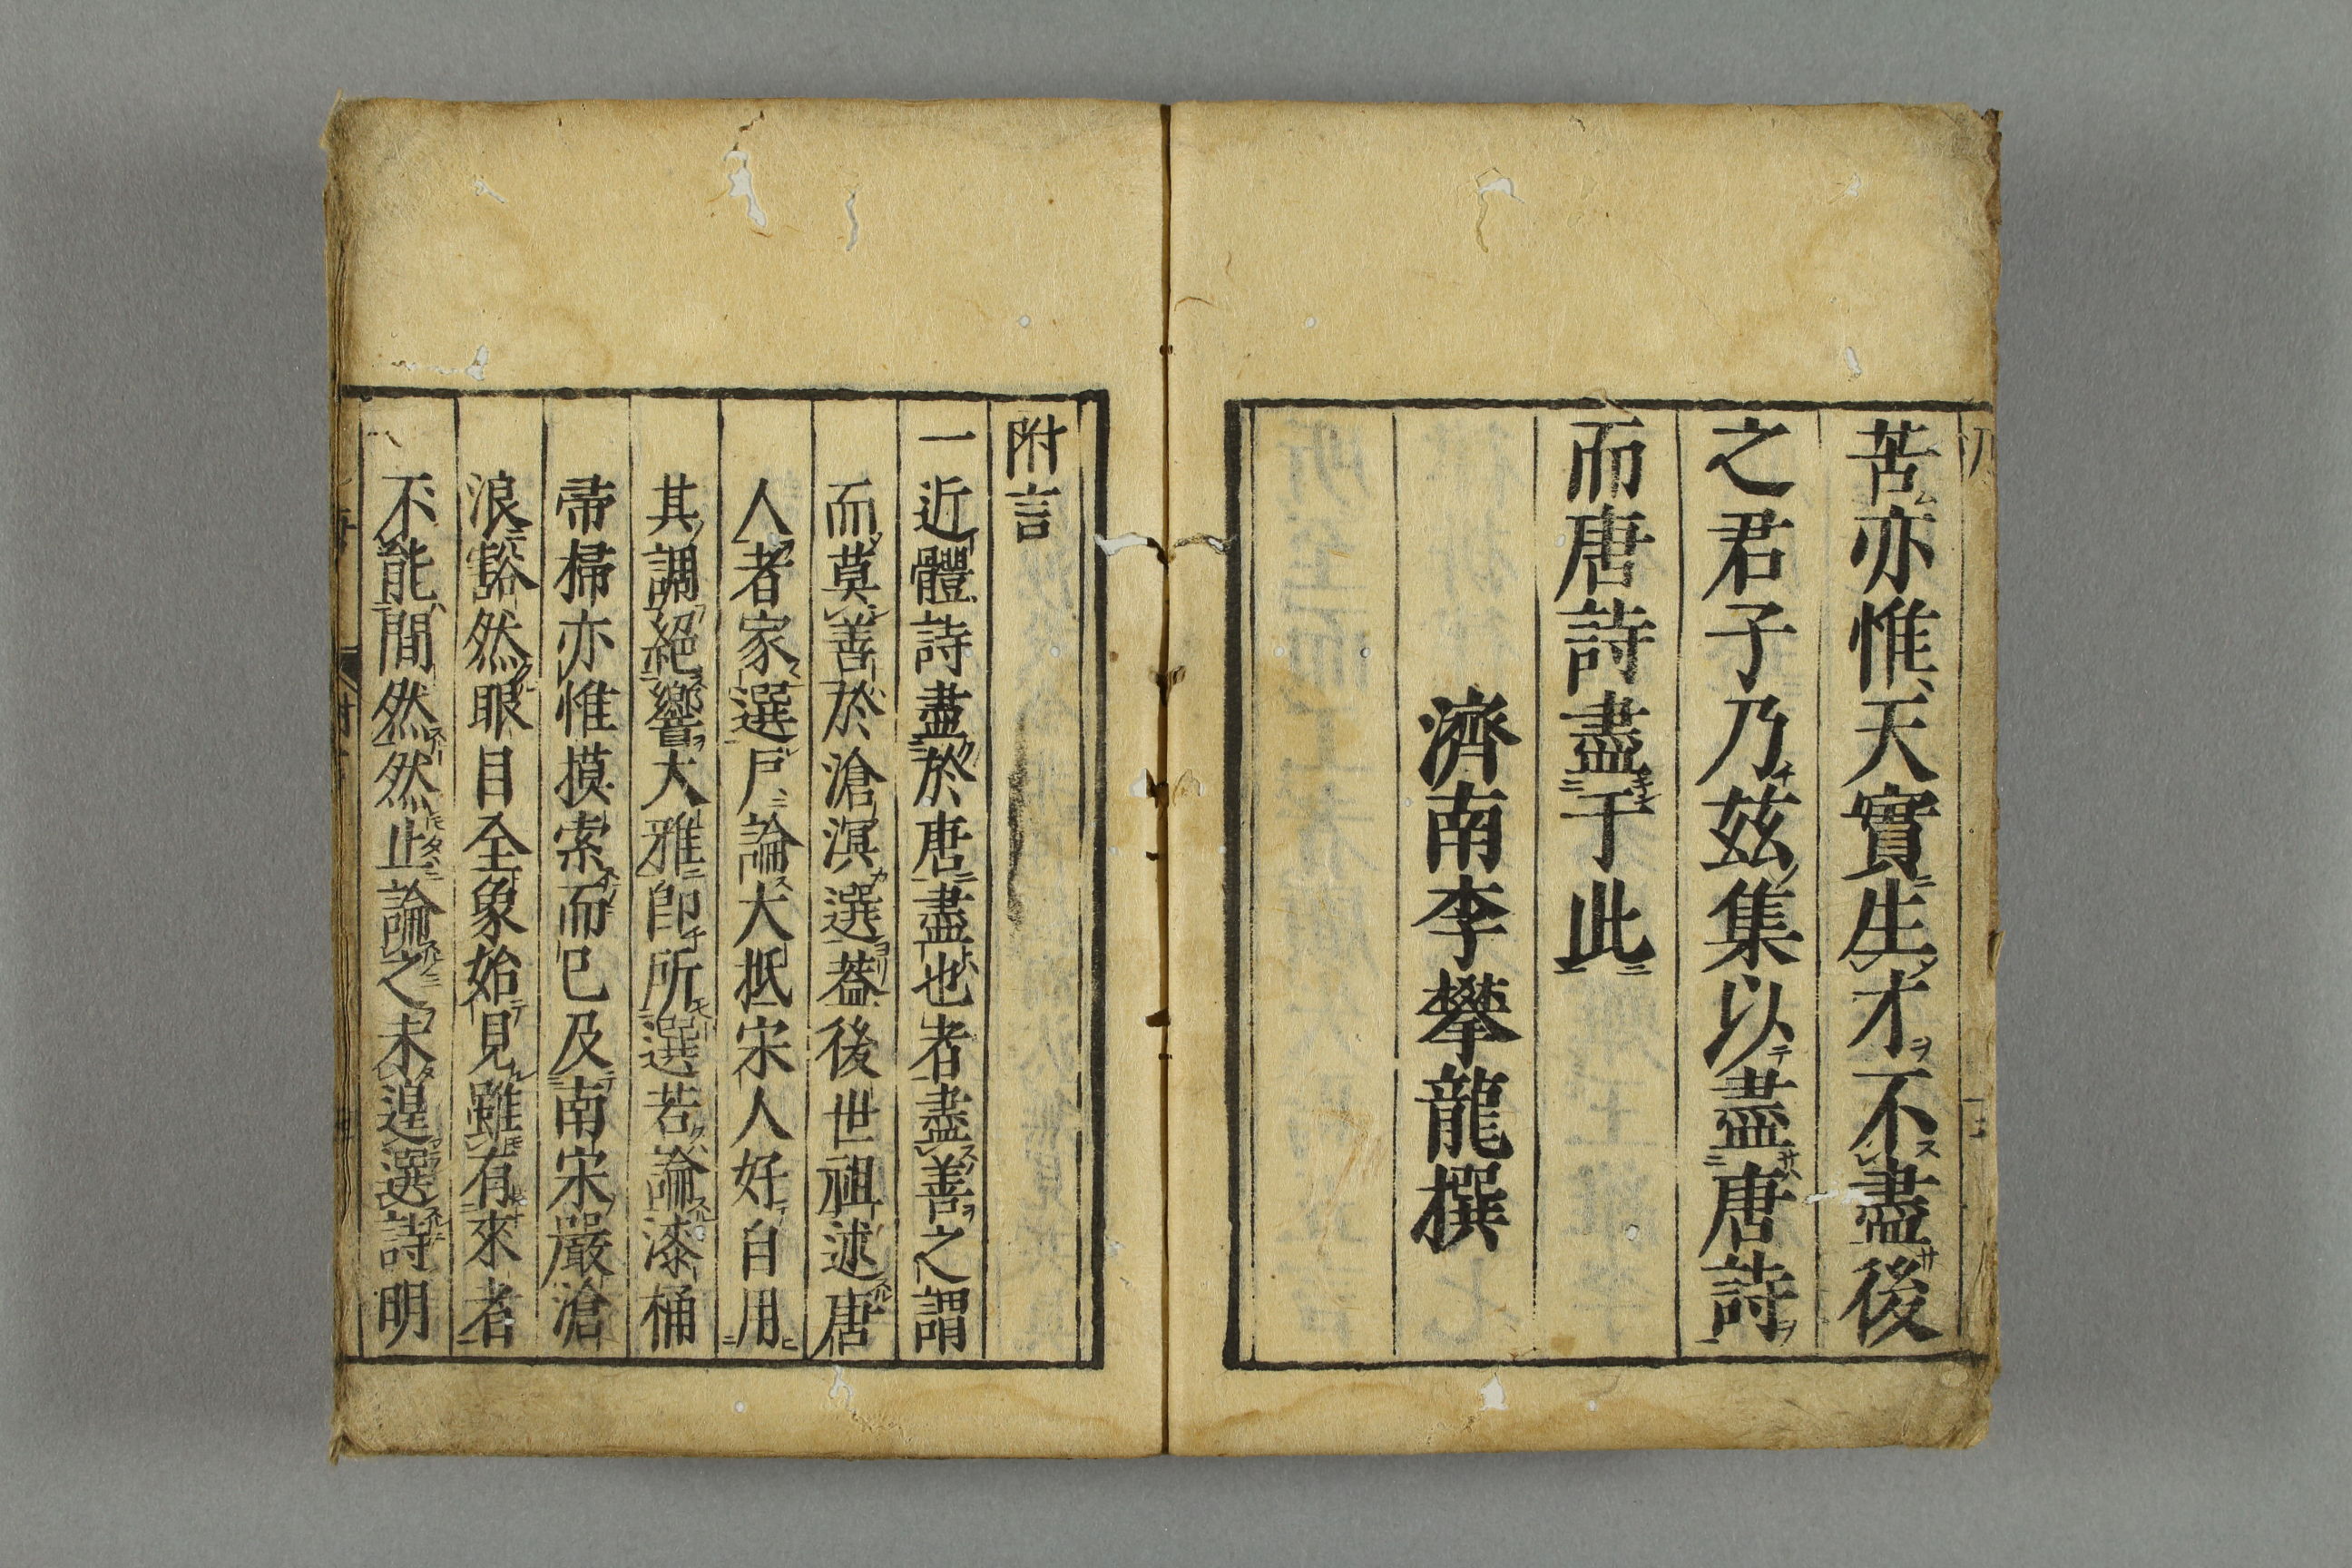 苦亦惟天實生才不盡後
之君子乃茲集以盡唐詩
而唐詩盡于此
濟南李攀龍撰
附言
一近體詩盡於唐盡也者盡善之謂
而莫善於滄溟選葢後世祖述唐
人者家選戶論大抵宋人好自用
其調絕響大雅即所選若論漆桶
帚掃亦惟摸索而已及南宋嚴滄
浪豁然眼目全象始見雖有來者
不能間然然止論之未遑選詩明